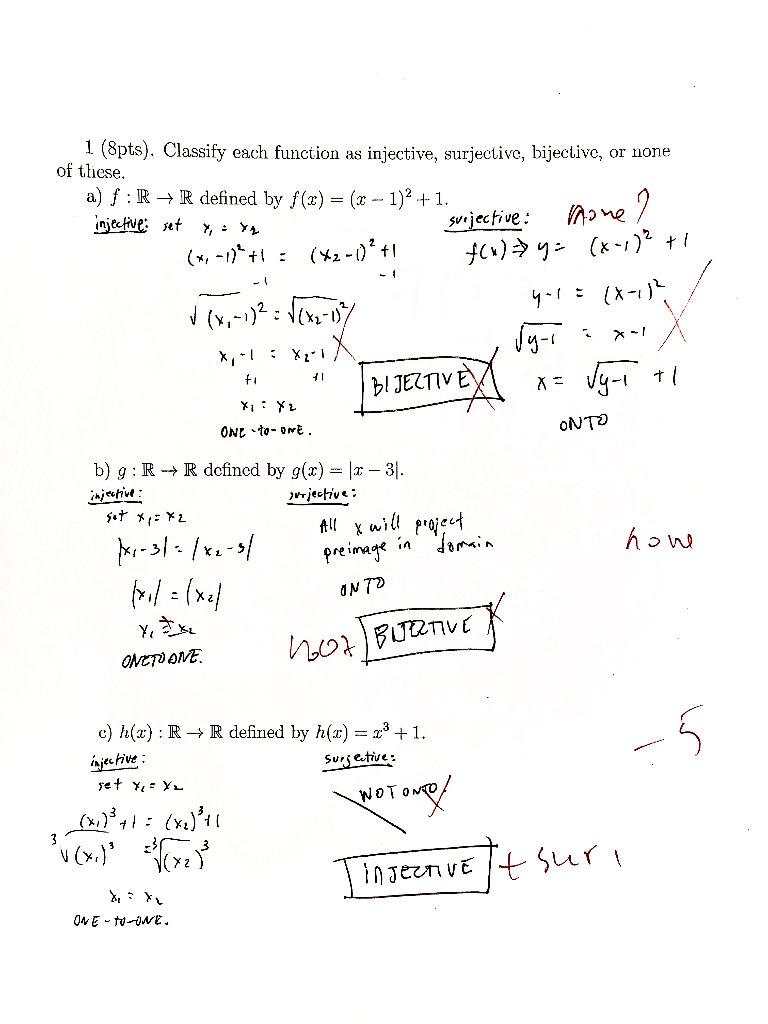 1 (8pts). Classify each function as injective, surjective, bijective, or none
of these.
a) f : ℝ → ℝ defined by f(x) = (x − 1)² + 1.
injective: set x₁ = x₂
(x₁-1)²+1 = (x₂-1)²+1
-1 -1
√(x₁-1)² = √(x₂-1)²
x₁-1 = x₂-1
+1 +1
x₁ = x₂
ONE-to-ONE.
surjective: none
f(x) ⇒ y = (x-1)² + 1
y-1 = (x-1)²
√y-1 = x-1
x = √y-1 + 1
ONTO
BIJECTIVE
b) g : ℝ → ℝ defined by g(x) = |x − 3|.
injective:
set x₁ = x₂
|x₁-3| = |x₂-3|
|x₁| = |x₂|
ONE TO ONE.
surjective:
All x will project
preimage in domain
ONTO
none
not BIJECTIVE
c) h(x) : ℝ → ℝ defined by h(x) = x³ + 1.
-5
injective:
set x₁ = x₂
(x₁)³+1 = (x₂)³+1
³√(x₁)³ = ³√(x₂)³
x₁ = x₂
ONE-to-ONE.
surjective:
NOT ONTO
INJECTIVE + surj